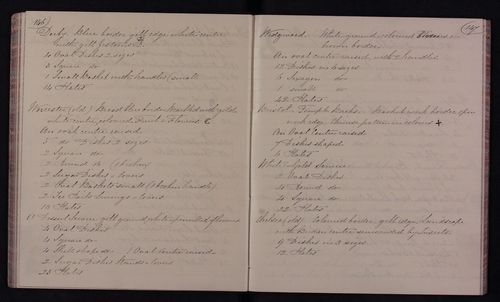 146
Derby. Blue border gilt edge white centre
with gilt
4 Oval Dishes 2 sizes
2 Square do
1 Small Basket with handles (small
14 Plates
Worcester (old) Broad blue border marbled with gold
white centre coloured Fruit & Flowers. C
An oval centre raised
5 do Dishes 2 sizes
2 Square do
2 Round do (1 broken)
2 Sugar Dishes & covers
2 Oval Baskets small (1 broken handle)
2 Ice Pails Linings & covers
18 Plates
gilt ground white flowers
4 Oval Dishes
4 Square do
4 Shell shape do 1 Oval centre raised
2 Sugar Dishes Stands & covers
23 Plates
147
Wedgwood. White ground coloured Flowers on
border
An oval centre raised with 2 handles
12 Dishes in 4 sizes
3 do
1 small do
42 Plates
Bristol. border open
work edge Chinese pattern in colours +
An Oval Centre raised
7 Dishes shaped
6 Plates
White & Gold Service
2 Oval Dishes
4 Round do
4 Square do
22 Plates
Chelsea (old) Coloured border gilt edge Landscape
with Birds in centre surrounded by Insects
9 Dishes in 3 sizes
12 Plates